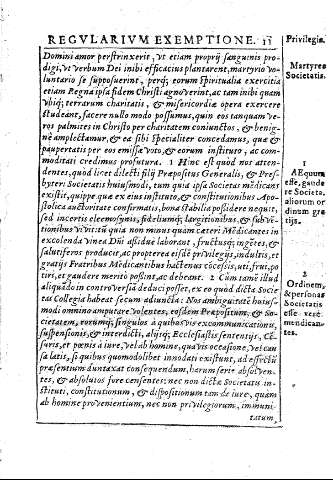 REGVLARIVM EXEMPTIONE. 11
Privilegia.
Domini amor perstrinxerit, vt etiam proprij sanguinis pro-
digi, vt verbum Dei inibi efficacius plantarent, martyrio vo-
luntario se supposuerint, perq; eorum spiritualia exercitia
etiam Regna ipsa fidem Christi agnoverint, ac tam inibi quam
vbiq; terrarum charitatis, & misericordiæ opera exercere
studeant, facere nullo modo possumus, quin eos tanquam ve-
ros palmites in Christo per charitatem coniunctos, & benig-
nè amplectamur, & ea sibi specialiter concedamus, quæ &
paupertatis per eos emissæ voto, & eorum instituto, ac com-
moditati credimus profutura. 1 Hinc est quòd nos atten-
dentes, quod licet dilecti filij Præpositus Generalis, & Pres-
byteri Societatis huiusmodi, tum quia ipsa Societas mendicans
existit, quippe quæ ex eius instituto, & constitutionibus Apo-
stolica auctoritate confirmatis, bona stabilia possidere nequit,
sed incertis eleemosynis, fideliumq; largitionibus, & subve-
tionibus vivit: tū quia non minus quam cæteri Mendicantes in
excolenda vinea Dñi assiduè laborant, fructusq; ingētes, &
salutiferos producūt, ac propterea eisdē privilegijs, indultis, et
gratijs Fratribus Mendicantibus hactenus cōcessis, uti, frui, po-
tiri, et gaudere meritò possint, ac debeant. 2 Cum tamē illud
aliquādo in controversiā deduci posset, ex eo quòd dictæ Socie-
tas Collegia habeat secum adiuncta: Nos ambiguitatē huius-
modi omnino amputare volentes, eosdem Præpositum, & So-
cietatem, eorumq; singulos à quibusvis excommunicationis,
suspensionis, & interdicti, alijsq; Ecclesiasticis sententijs, Cē-
suris, et pœnis à iure, vel ab homine, quavis occasione, vel cau-
sa latis, si quibus quomodolibet innodati existunt, ad effectū
præsentium duntaxat consequendum, harum serie absolven-
tes, & absolutos fore censentes: nec non dictæ Societatis in-
stituti, constitutionum, & dispositionum tam de iure, quàm
ab homine provenientium, nec non privilegiorum, immuni-
tatum,
Martyres
Societatis.
1
Æquum
esse, gaude
re Societa.
aliorum or
dinum gra
tijs.
2
Ordinem,
& personas
Societatis
esse verè
mendican-
tes.